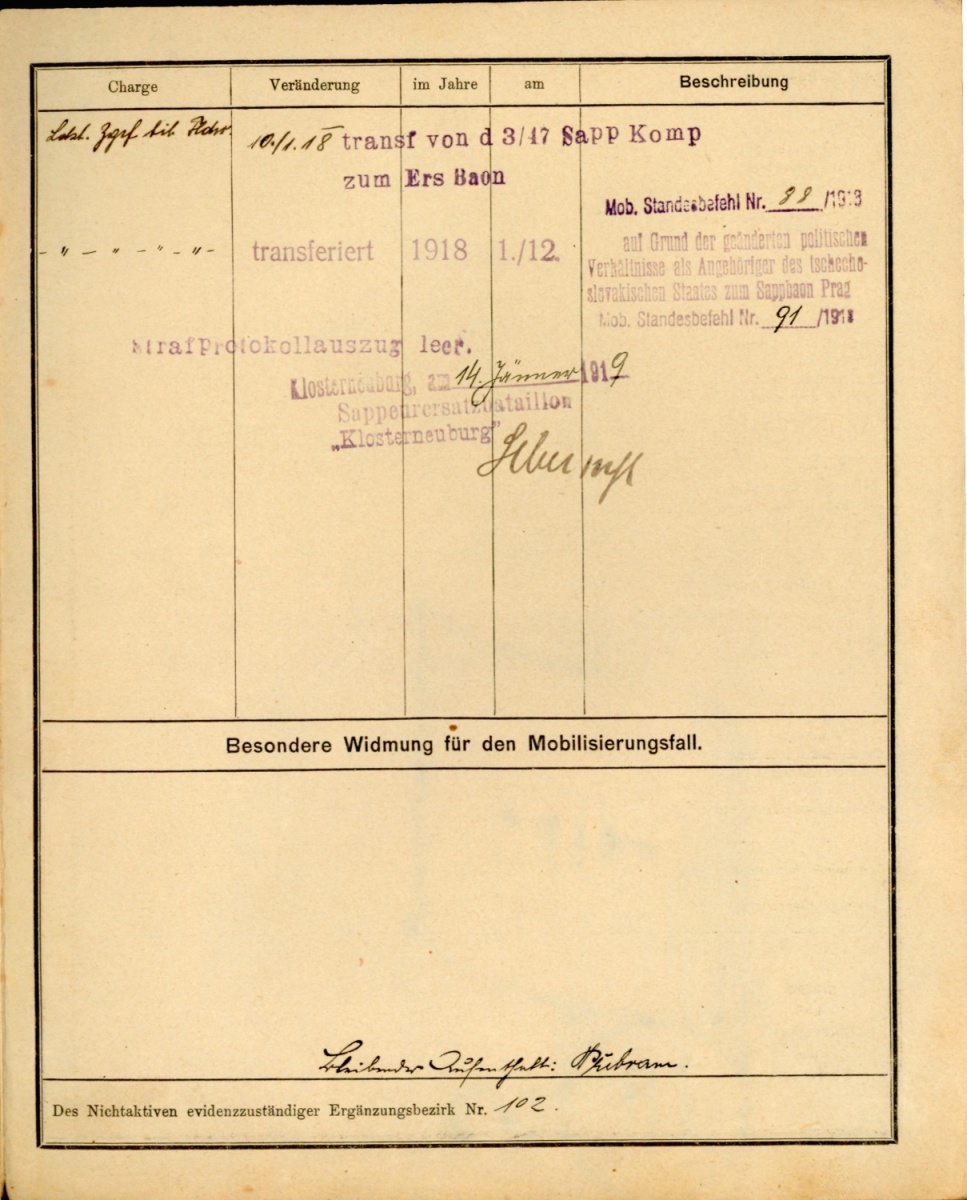 Charge Veränderung im Jahre am Beschreibung
Zgsf tit 10./1. 18 transf von d 3/17 Sapp Komp
zum Ers Baon
Mob. Standesbefehl Nr. 88/1918
-"-"-"-"- transferiert 1918 1./12. auf Grund der geänderten politischen
Verhältnisse als Angehöriger des tschecho-
slovakischen Staates zum Sappbaon Prag
Mob. Standesbefehl Nr. 91/1918
Strafprotokollauszug leer.
Klosterneuburg, am 14. Jänner 1919
Sappeurersatzbataillon
„Klosterneuburg"
Besondere Widmung für den Mobilisierungsfall.
Bleibender Aufenthalt: Přibram.
Des Nichtaktiven evidenzzuständiger Ergänzungsbezirk Nr. 102.